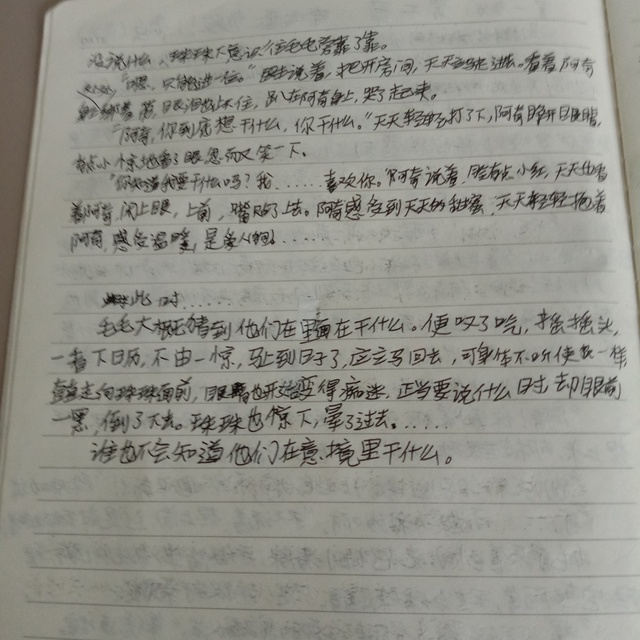 没说什么，珠珠下意识往毛毛旁靠了靠。
“嗯，只能进一位。”医生说着，把开房间，天天马上走进去。看着阿奇
绑着，眼泪止不住，趴在阿奇身上，哭了起来。
“阿奇，你到底想干什么，你干什么。”天天轻轻打了下，阿奇睁开眼睛，
有点小惊地看了眼忽而又笑一下。
“你知道我要干什么吗？我……喜欢你。”阿奇说着，脸有点小红，天天也看
着阿奇，闭上眼，上前，嘴贴了上去。阿奇感受到天天的甜蜜，天天轻轻抱着
阿奇，感受温暖，是多么的……
此时……
毛毛大概猜到他们在里面在干什么。便叹了气，摇摇头，
一看下日历，不由一惊，马上到日子了，应立马回去，可身体不听使唤一样
走向珠珠面前，眼睛也开始变得痴迷，正当要说什么时，却眼前
一黑，倒了下去。珠珠也惊下，晕了过去。……
谁也不会知道他们在意境里干什么。